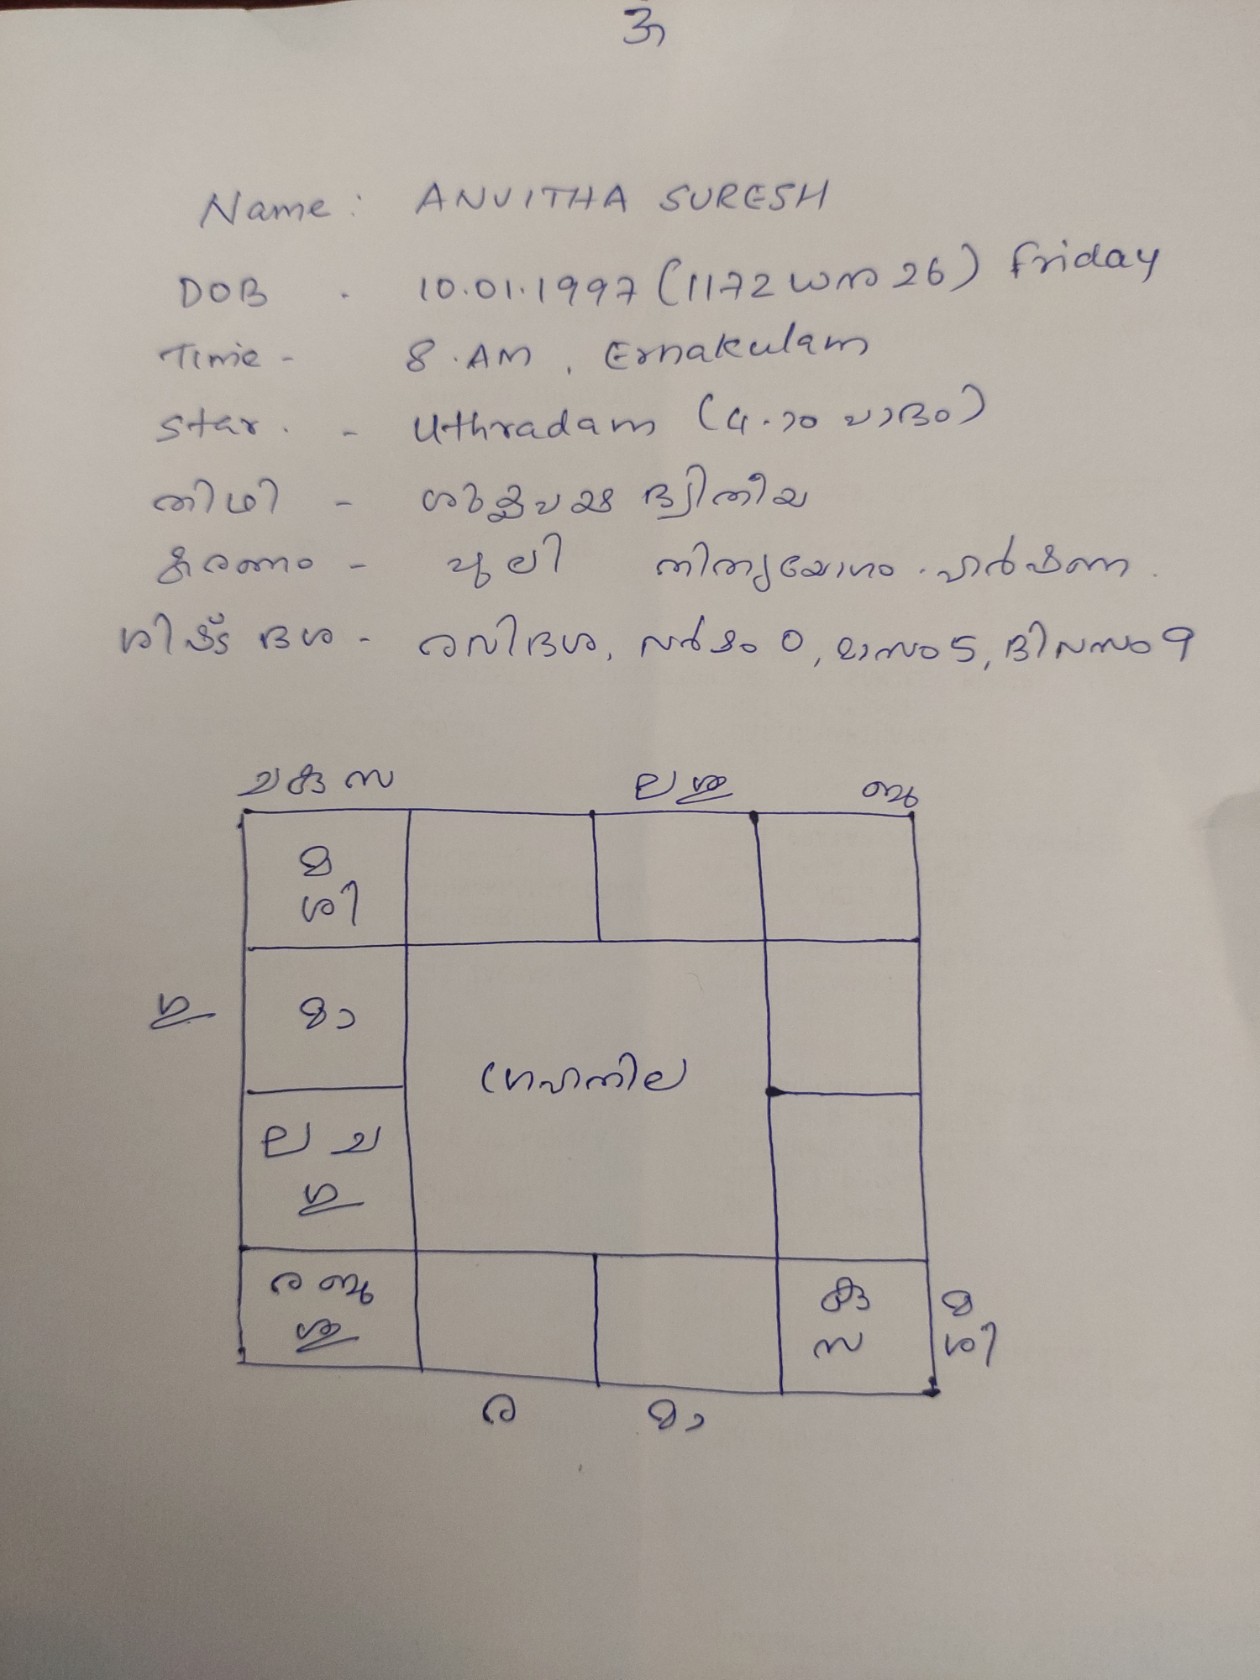 ॐ
Name: ANVITHA SURESH
DOB . 10.01.1997 (1172 ധനു 26) Friday
Time - 8.AM, Ernakulam
Star. - Uthradam (4-ാം പാദം)
തിഥി - ശുക്ലപക്ഷ ദ്വിതീയ
കരണം - പുലി നിത്യയോഗം . ഹർഷണ .
ശിഷ്ട ദശ - രവിദശ, വർഷം 0, മാസം 5, ദിവസം 9
ച കു സ ല ശു ബു
മ
ശി
ഗു മാ
ഗ്രഹനില
ല ച
ഗു
ര ബു
ശു
കു
സ
മ
ശി
ര മാ